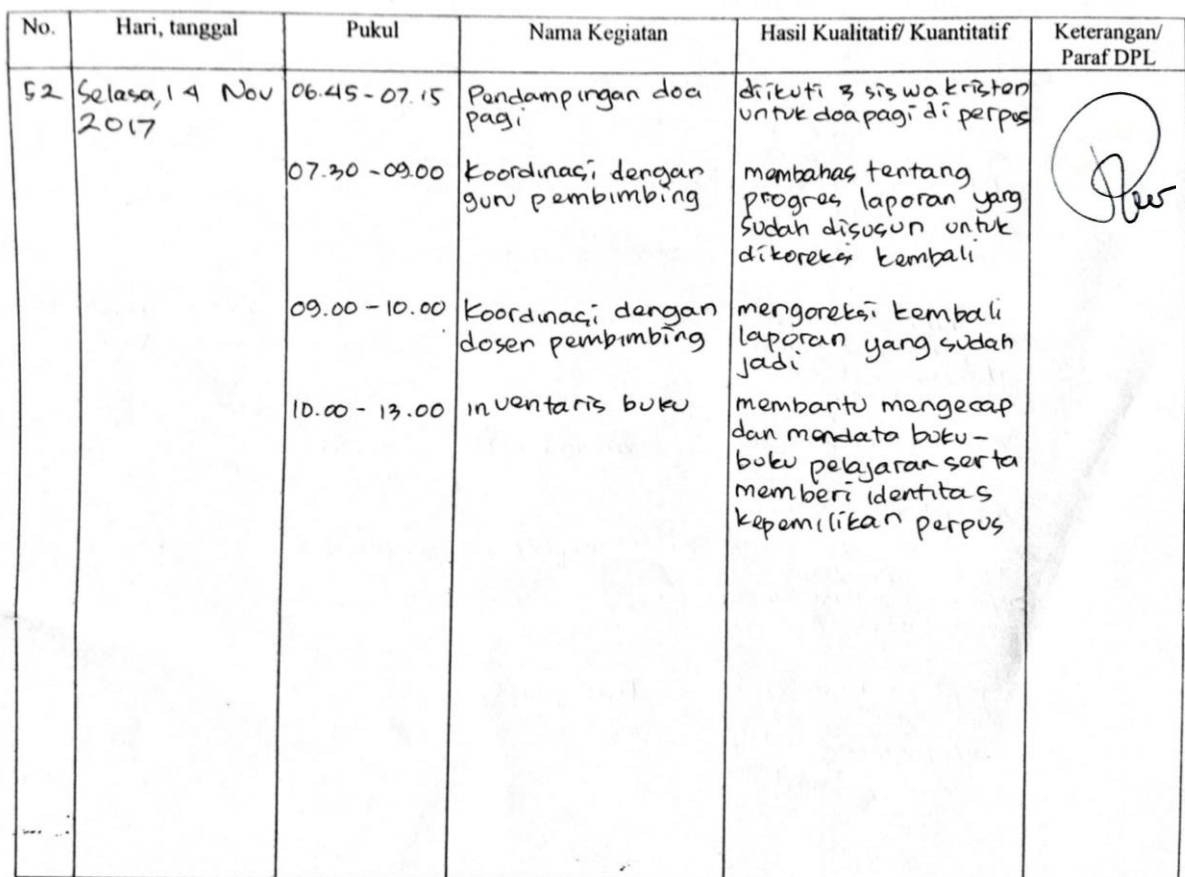 No. Hari, tanggal Pukul Nama Kegiatan Hasil Kualitatif/ Kuantitatif Keterangan/
Paraf DPL
52 Selasa, 14 Nov 06.45 - 07.15 Pendampingan doa diikuti 3 siswa kristen
2017 pagi untuk doa pagi di perpus
07.30 - 09.00 Koordinasi dengan membahas tentang
guru pembimbing progres laporan yang
sudah disusun untuk
dikoreksi kembali
09.00 - 10.00 Koordinasi dengan mengoreksi kembali
dosen pembimbing laporan yang sudah
jadi
10.00 - 13.00 inventaris buku membantu mengecap
dan mendata buku-
buku pelajaran serta
memberi identitas
kepemilikan perpus